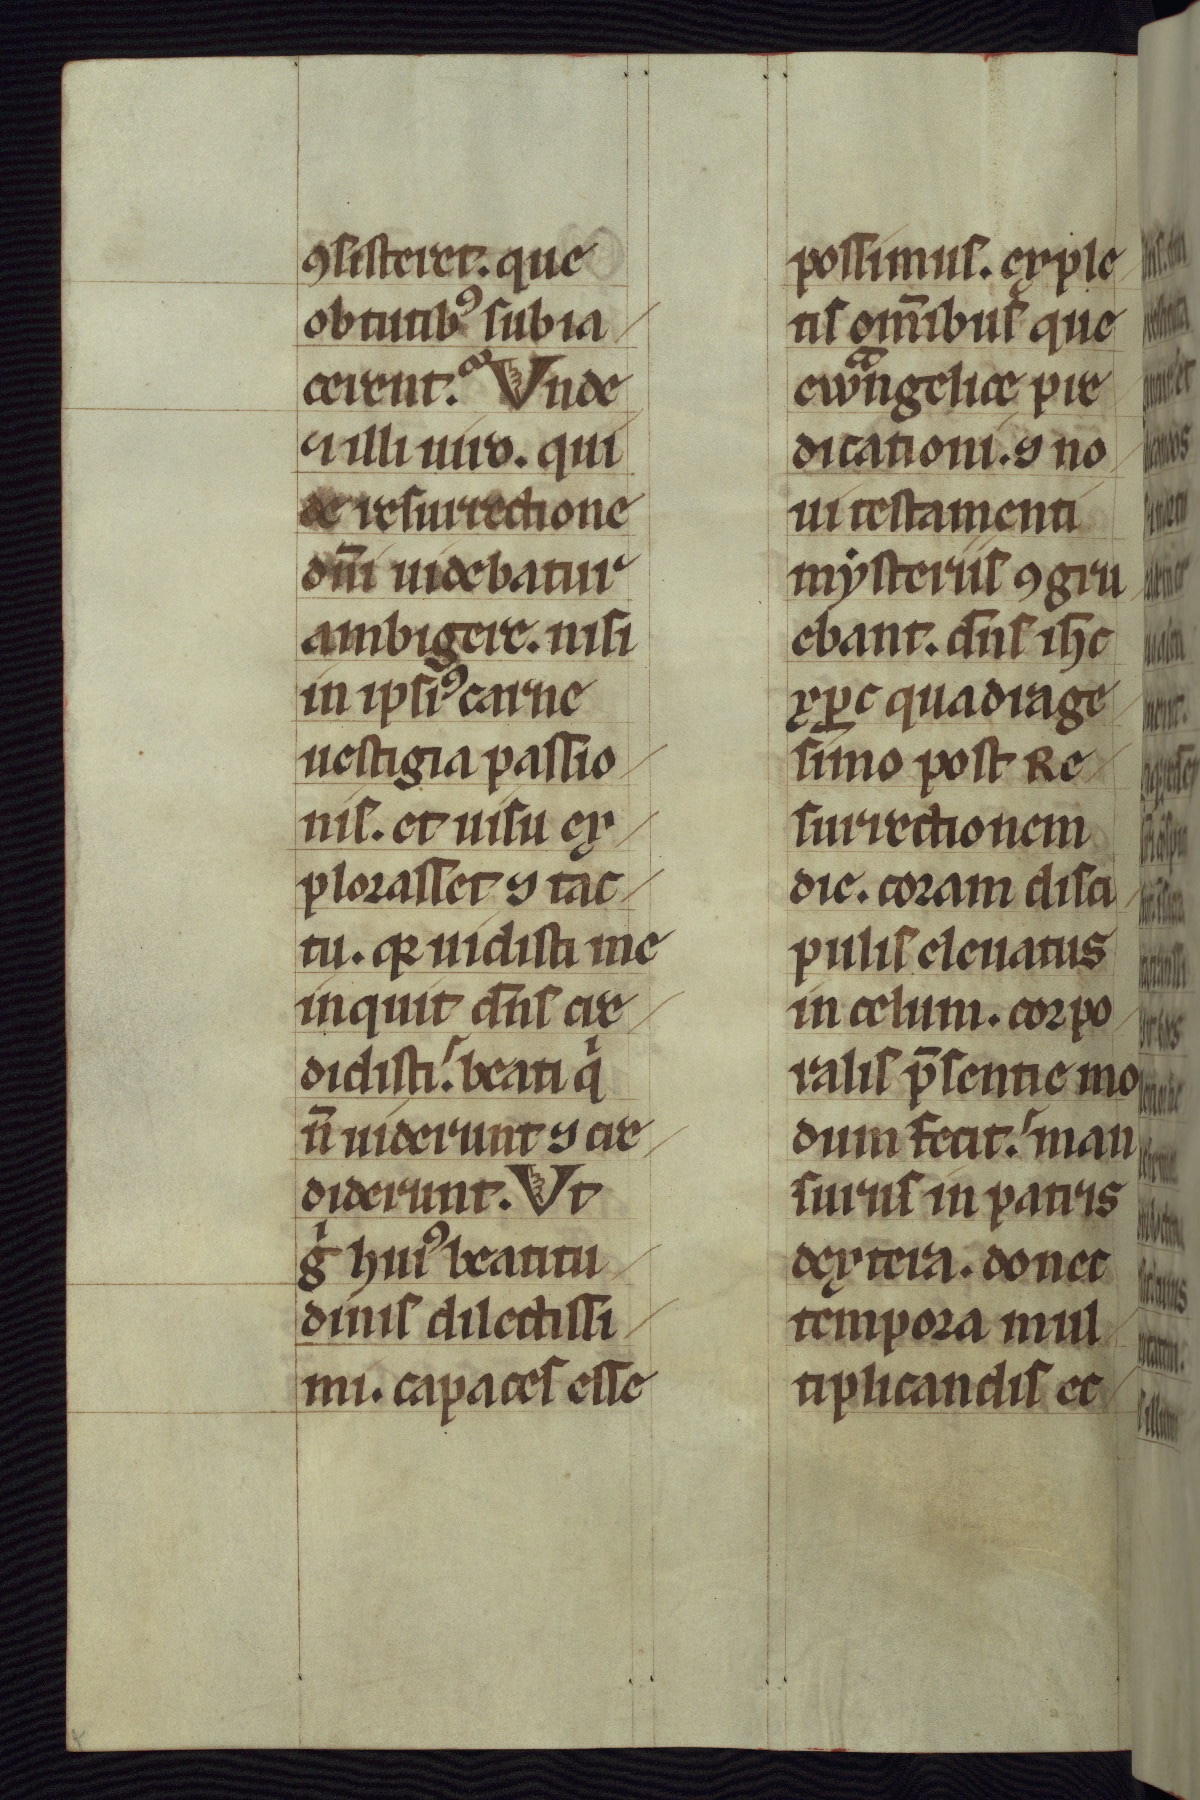 ꝯsisteret. que
obtutibꝰ subia
cerent. Vnde
⁊ illi uiro. qui
de resurrectione
dn̄i uidebatur
ambigere. nisi
in ipsiꝰ carne
uestigia passio
nis. et uisu ex
plorasset ⁊ tac
tu. qꝛ uidisti me
inquit dn̄s cre
didisti. beati qͥ
n̄ uiderunt ⁊ cre
diderunt. Vt
gͥ huiꝰ beatitu
dinis dilectissi
mi. capaces esse
possimus. exple
tis om̄ibus que
ewangelice pre
dicationi. ⁊ no
ui testamenti
mẏsteriis ꝯgru
ebant. dn̄s ih̄c
xp̄c quadrage
simo post Re
surrectionem
die. coram disci
pulis eleuatus
in celum. corpo
ralis p̄sentie mo
dum fecit. man
surus in patris
dextera. donec
tempora mul
tiplicandis ec